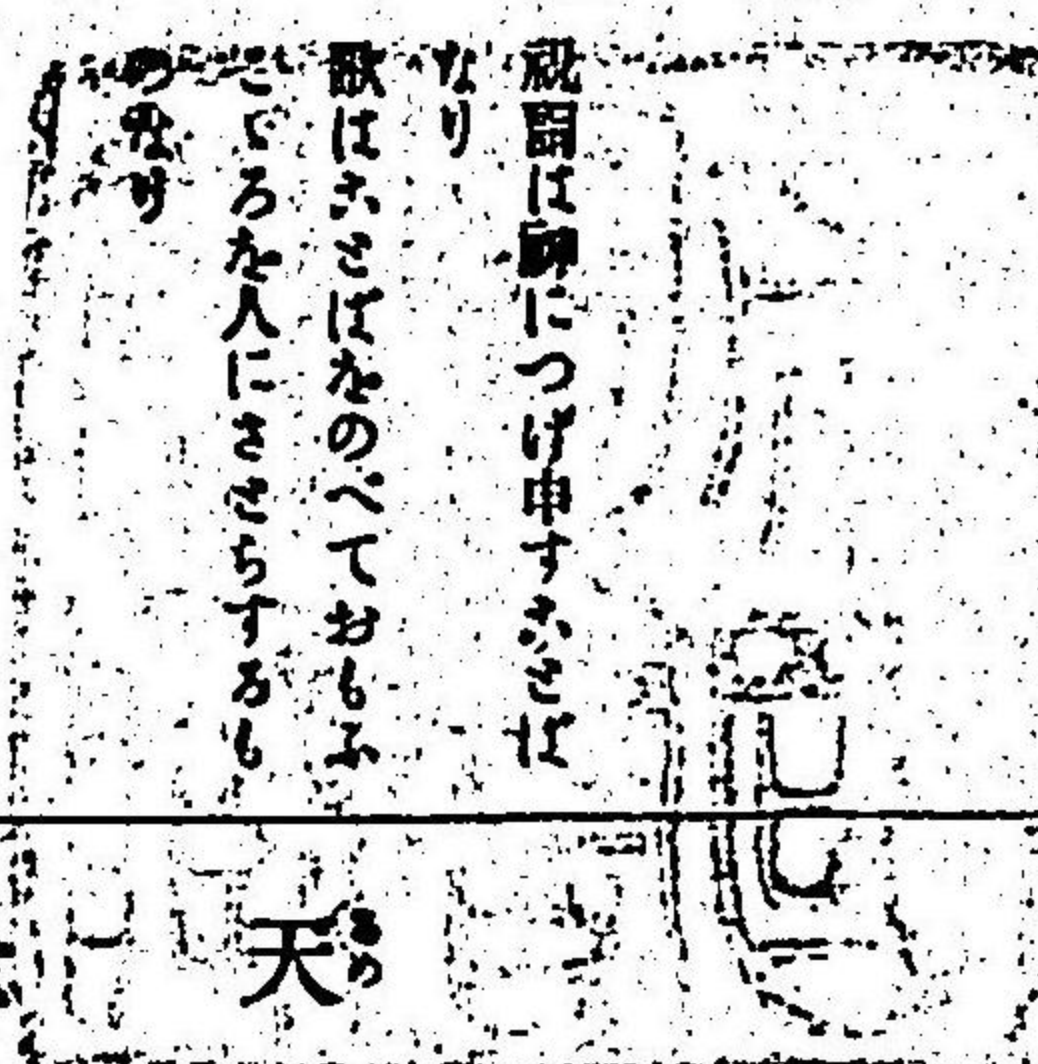 祝詞は神につげ申すことば
なり
歌はことばをのべておもふ
こゝろを人にさとらするも
のなり
天